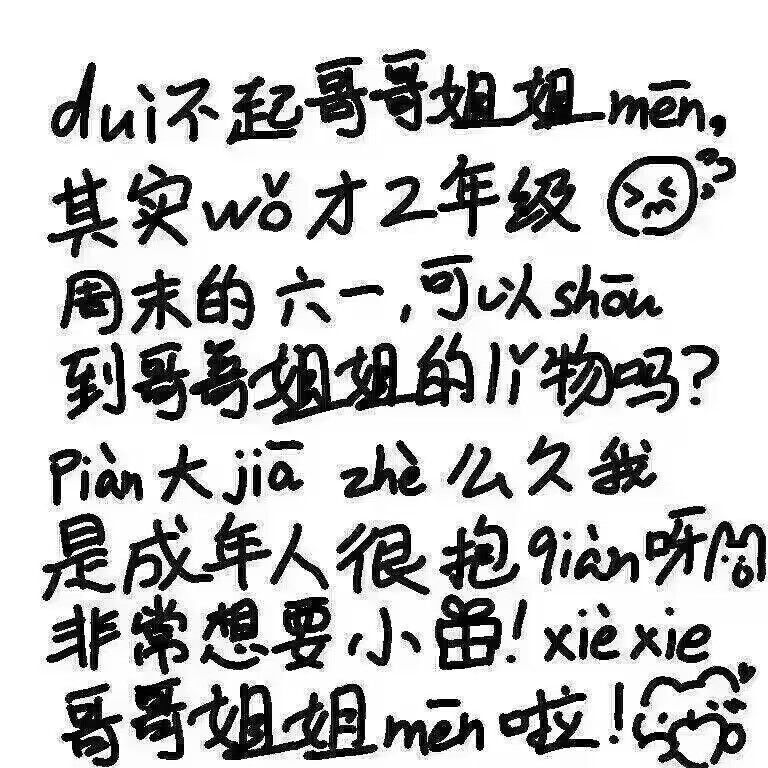 duì不起哥哥姐姐mēn,
其实wǒ才2年级
周末的六一,可以shōu
到哥哥姐姐的lǐ物吗?
piàn大jiā zhè么久我
是成年人很抱qiàn呀
非常想要小！xièxie
哥哥姐姐mēn啦！